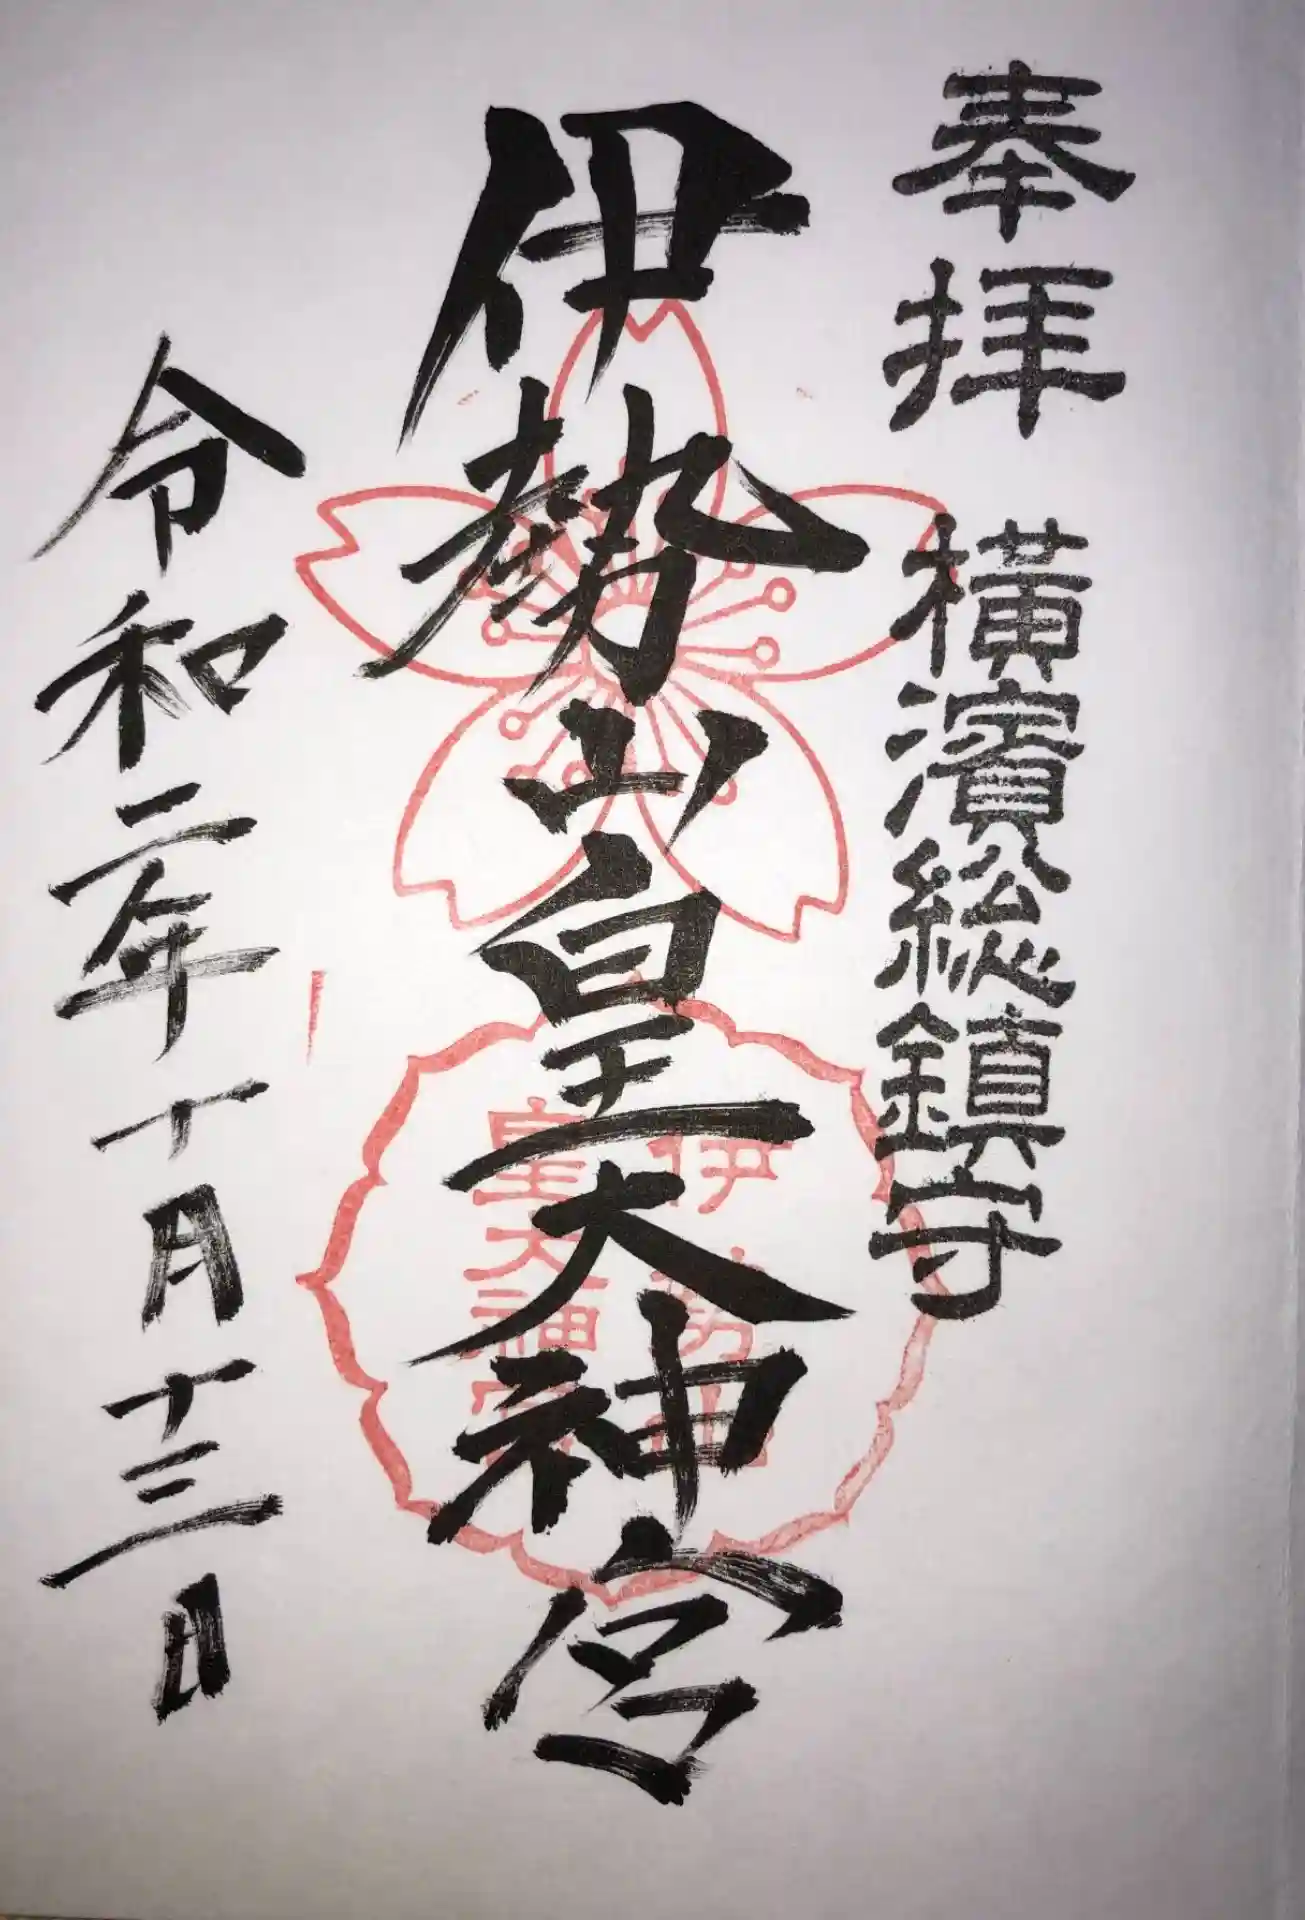 奉拝 横濱総鎮守
伊勢山皇大神宮
伊勢山
皇大神宮
令和二年十月十三日